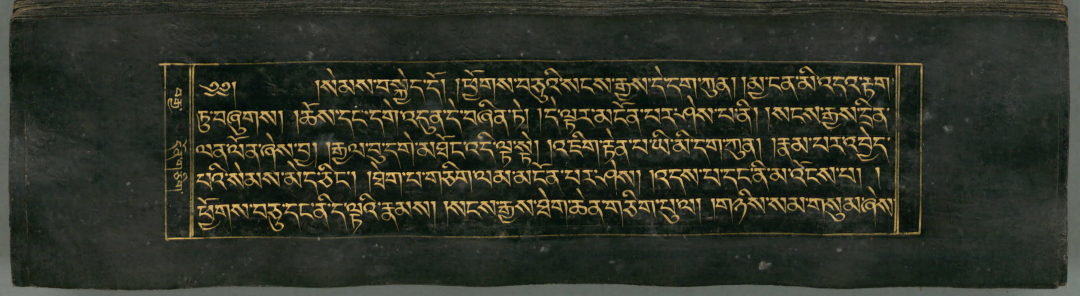 ༄༅། །སེམས་བསྐྱེད་དོ། །ཕྱོགས་བཅུའི་སངས་རྒྱས་དེ་དག་ཀུན། །མྱ་ངན་མི་འདའ་རྟག་
ཏུ་བཞུགས། །ཆོས་དང་དགེ་འདུན་དེ་བཞིན་ཏེ། །དེ་ལྟར་མངོན་པར་ཤེས་པ་ནི། །སངས་རྒྱས་དྲིན་
ལན་ལོན་ཞེས་བྱ། །རྒྱལ་བུ་དགེ་མཐོང་འདི་ལྟ་སྟེ། །འཇིག་རྟེན་པ་ཡི་མི་དག་ཀུན། །རྣམ་པར་འབྱེད་
པའི་སེམས་མེད་ཅིང་། །ཐེག་པ་གཅིག་ལམ་མངོན་པར་ཤེས། །འདས་པ་དང་ནི་མ་འོངས་པ། །
ཕྱོགས་བཅུ་དང་ནི་ད་ལྟའི་རྣམས། །སངས་རྒྱས་ཐེག་ཆེན་གཅིག་པུ་ལ། །གཉིས་སམ་གསུམ་ཞེས་